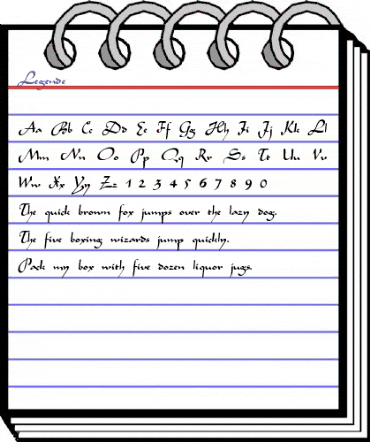 Legende
Aa Bb Cc Dd Ee Ff Gg Hh Ii Jj Kk Ll
Mm Nn Oo Pp Qq Rr Ss Tt Uu Vv
Ww Xx Yy Zz 1 2 3 4 5 6 7 8 9 0
The quick brown fox jumps over the lazy dog.
The five boxing wizards jump quickly.
Pack my box with five dozen liquor jugs.